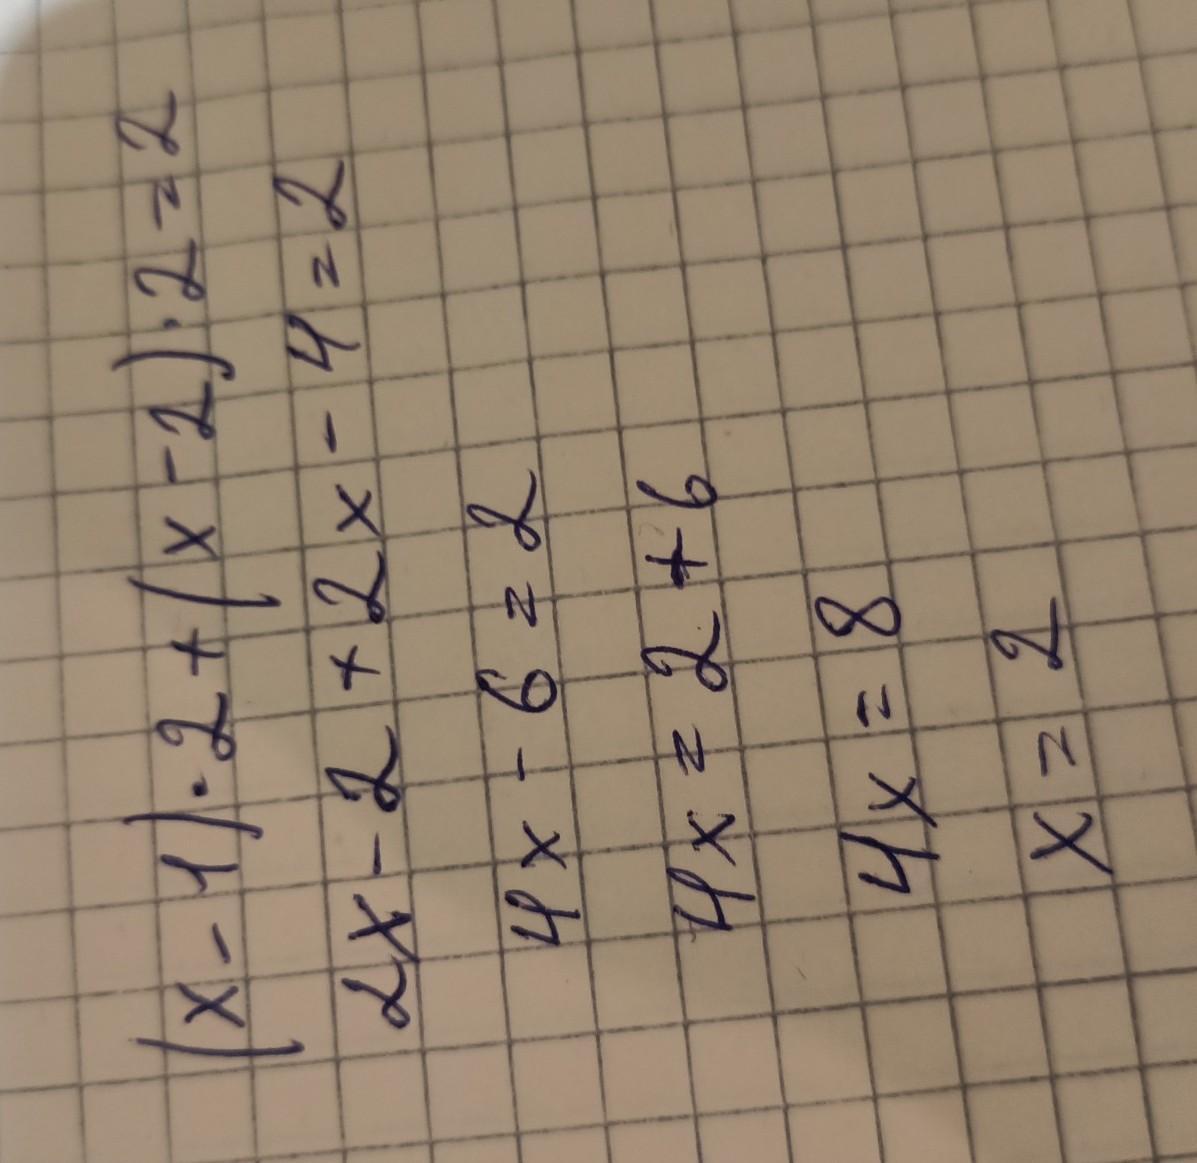 (x-1)·2+(x-2)·2=2
2x-2+2x-4=2
4x-6=2
4x=2+6
4x=8
x=2